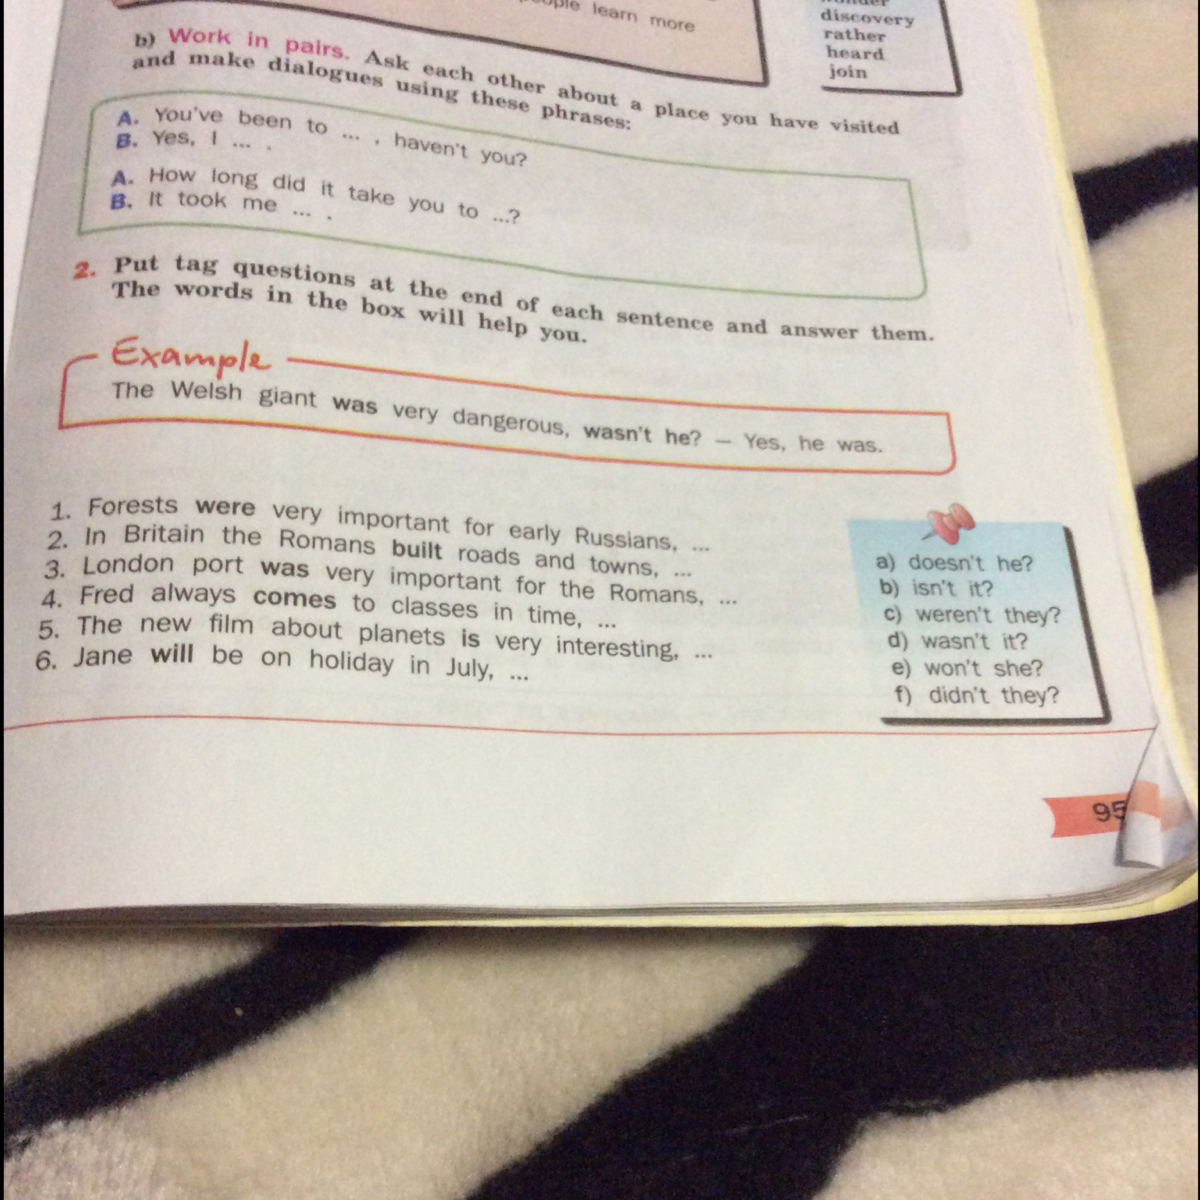 learn more
discovery
rather
heard
join
b) Work in pairs. Ask each other about a place you have visited
and make dialogues using these phrases:
A. You've been to ... , haven't you?
B. Yes, I ... .
A. How long did it take you to ...?
B. It took me ... .
2. Put tag questions at the end of each sentence and answer them.
The words in the box will help you.
Example
The Welsh giant was very dangerous, wasn't he? — Yes, he was.
1. Forests were very important for early Russians, ...
2. In Britain the Romans built roads and towns, ...
3. London port was very important for the Romans, ...
4. Fred always comes to classes in time, ...
5. The new film about planets is very interesting, ...
6. Jane will be on holiday in July, ...
a) doesn't he?
b) isn't it?
c) weren't they?
d) wasn't it?
e) won't she?
f) didn't they?
95